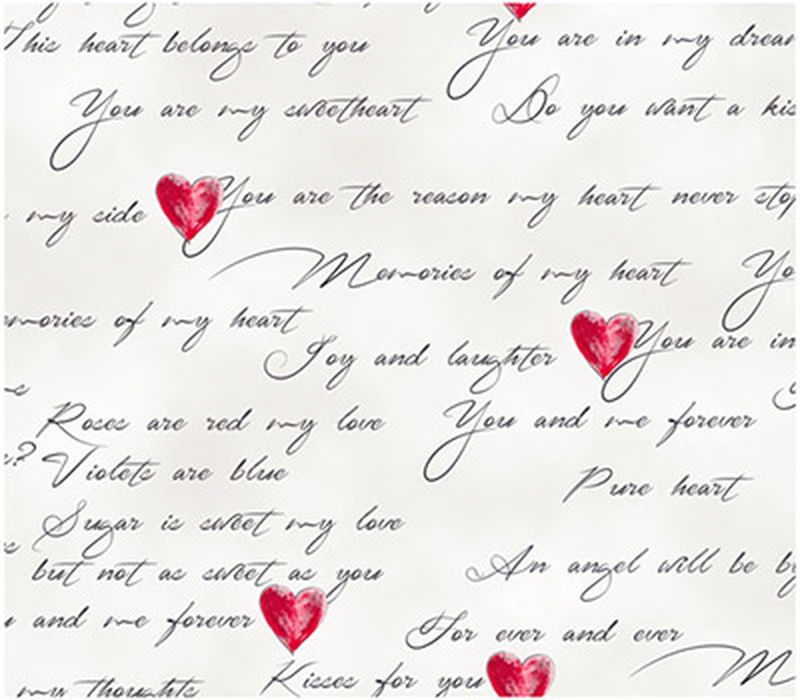 This heart belongs to you
You are in my drean
You are my sweetheart
Do you want a kis
my side
You are the reason my heart never stop
Memories of my heart
Yo
mories of my heart
Joy and laughter
You are in
Roses are red my love
You and me forever
s?
Violets are blue
Pure heart
Sugar is sweet my love
but not as sweet as you
An angel will be by
and me forever
For ever and ever
Kisses for you
M
my thoughts